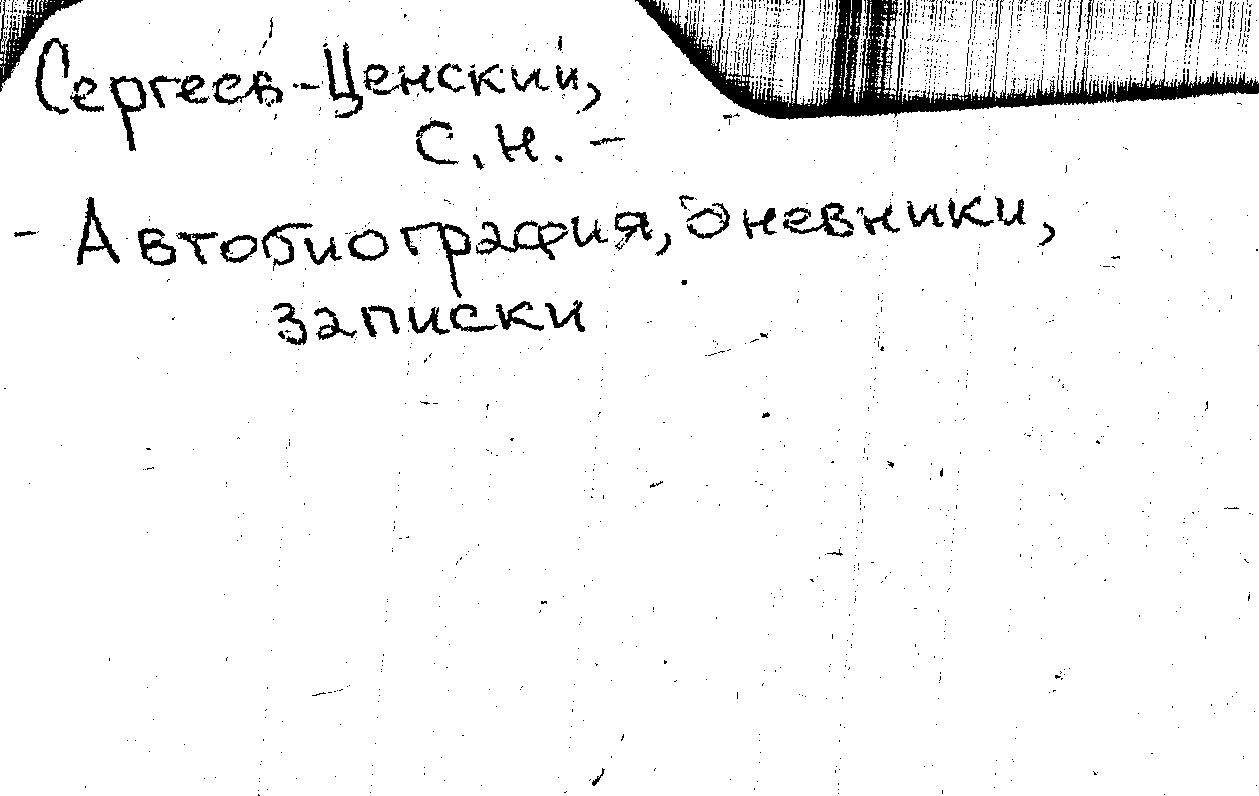 Сергеев-Ценский,
С.Н. –
- Автобиография, дневники,
записки